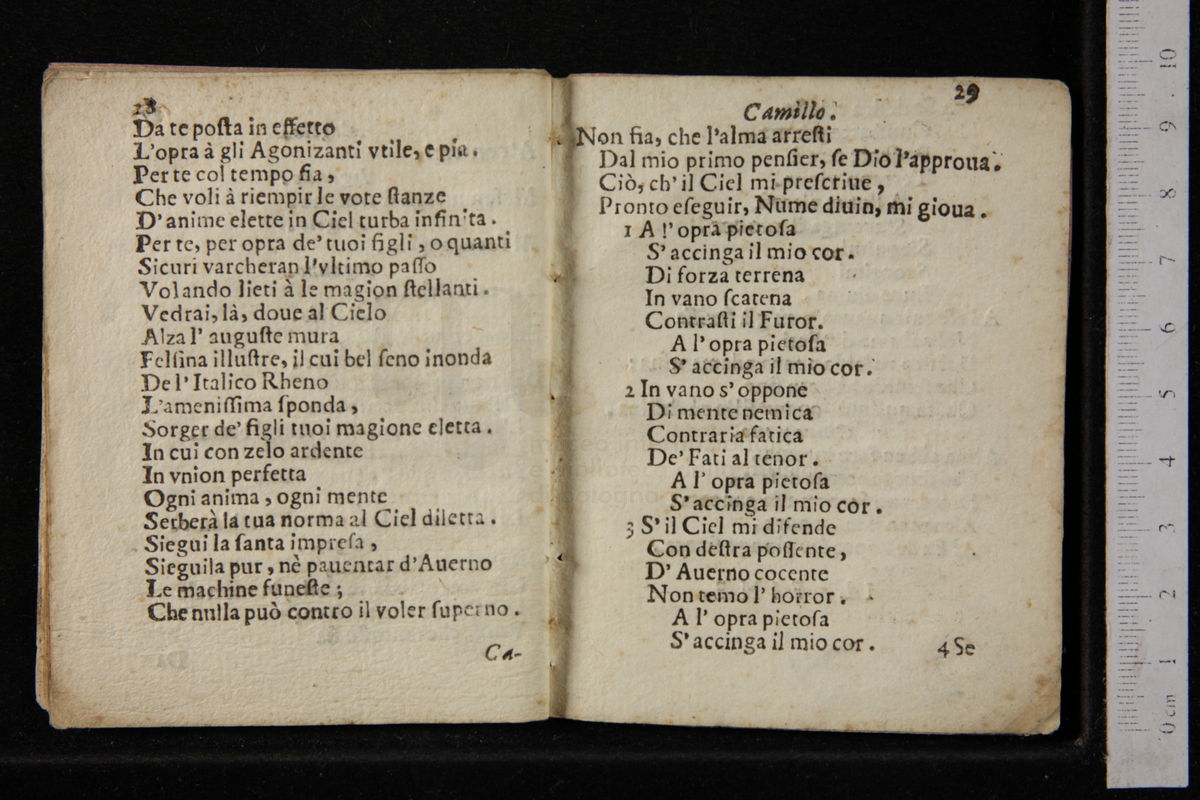 28
Da te poſta in effetto
L'opra à gli Agonizanti vtile, e pia.
Per te col tempo fia,
Che voli à riempir le vote ſtanze
D'anime elette in Ciel turba infinita.
Per te, per opra de' tuoi figli, o quanti
Sicuri varcheran l'vltimo paſſo
Volando lieti à le magion ſtellanti.
Vedrai, là, doue al Cielo
Alza l' auguſte mura
Felſina illuſtre, il cui bel ſeno inonda
De l' Italico Rheno
L'ameniſſima ſponda,
Sorger de' figli tuoi magione eletta.
In cui con zelo ardente
In vnion perfetta
Ogni anima, ogni mente
Serberà la tua norma al Ciel diletta.
Siegui la ſanta impreſa,
Sieguila pur, nè pauentar d'Auerno
Le machine funeſte;
Che nulla può contro il voler ſuperno.
Ca-
29
Camillo.
Non fia, che l'alma arreſti
Dal mio primo penſier, ſe Dio l'approua.
Ciò, ch' il Ciel mi preſcriue,
Pronto eſeguir, Nume diuin, mi gioua.
1 A l' opra pietoſa
S' accinga il mio cor.
Di forza terrena
In vano ſcatena
Contraſti il Furor.
A l' opra pietoſa
S' accinga il mio cor.
2 In vano s' oppone
Di mente nemica
Contraria fatica
De' Fati al tenor.
A l' opra pietoſa
S' accinga il mio cor.
3 S' il Ciel mi difende
Con deſtra poſſente,
D' Auerno cocente
Non temo l' horror.
A l' opra pietoſa
S' accinga il mio cor.
4 Se
0 cm 1 2 3 4 5 6 7 8 9 10